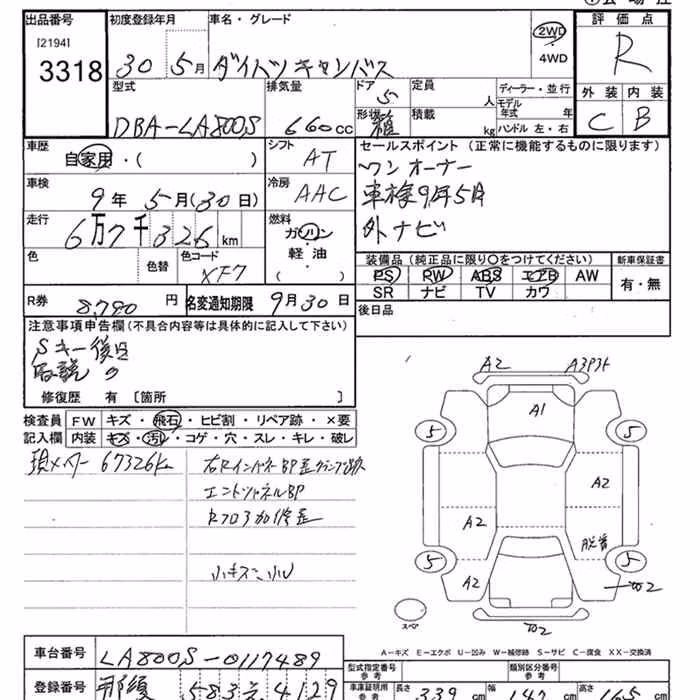 出品番号
[2194]
3318
初度登録年月
30 5月
車名・グレード
ダイハツ キャンバス
2WD
・
4WD
評価点
R
外装 内装
C B
型式
DBA-LA800S
排気量
660cc
ドア
5
形状
定員
人
積載
kg
ディーラー・並行
モデル年式 年
ハンドル 左・右
車歴
自家用・( )
シフト
AT
車検
9年 5月(30日)
冷房
AAC
走行
6万7千326km
燃料
ガソリン
軽油
( )
色
色替
色コード
XF7
R券
8,790円
名変通知期限 9月30日
セールスポイント(正常に機能するものに限ります)
ワンオーナー
車検9年5月
外ナビ
装備品(純正品に限り○をつけてください)
PS PW ABS エアB AW
SR ナビ TV カワ
新車保証書
有・無
後日品
注意事項申告欄(不具合内容等は具体的に記入して下さい)
Sキー後日
取説 〃
修復歴 有〔箇所 〕
検査員
記入欄
FW キズ・飛石・ヒビ割・リペア跡・×要
内装 キズ・汚レ・コゲ・穴・スレ・キレ・破レ
現メーター 67326km
エンドパネルBP
小キズ凹
A2
A3P3
A1
5
5
A2
A2
5
5
A2
W2
W2
スペア
A-キズ E-エクボ U-凹み W-補修跡 S-サビ C-腐食 XX-交換済
車台番号
LA800S-0117489
登録番号
那覇 583 え 4129
型式指定番号
参考
類別区分番号
参考
車庫証明用
参考
長さ 339cm
幅 147cm
高さ 165cm